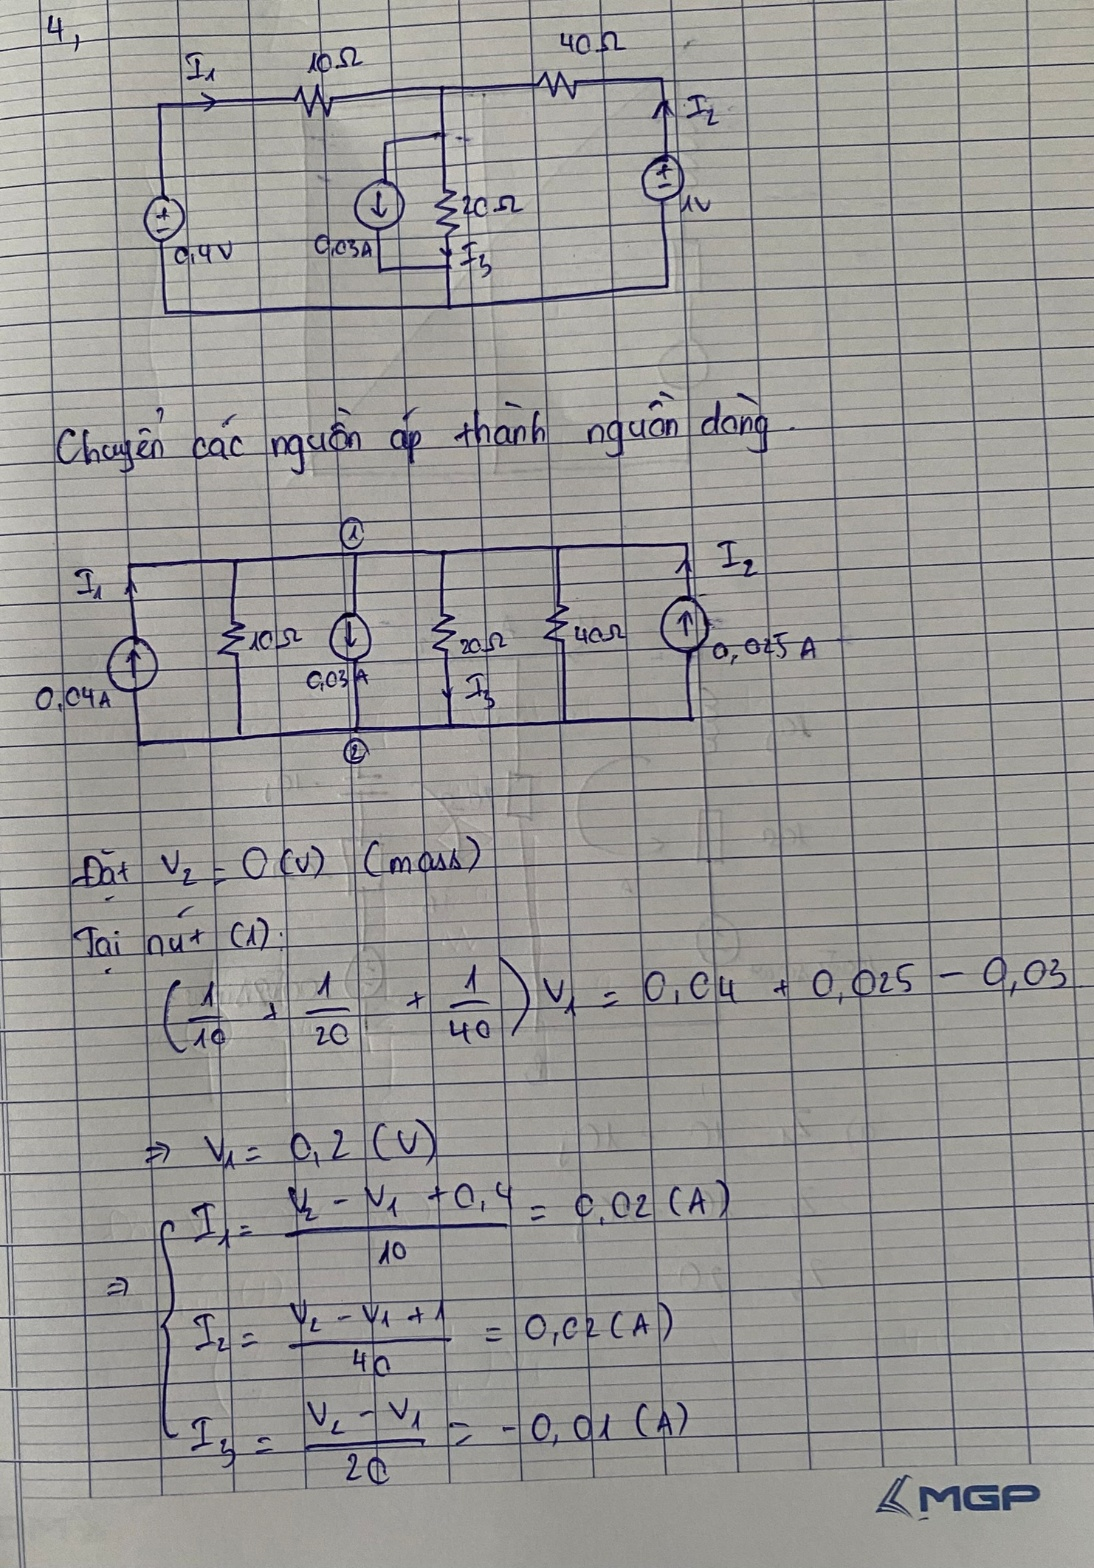 4,
I₁ 10Ω 40Ω
I₂
0,4V 0,03A 20Ω 1V
I₃
Chuyển các nguồn áp thành nguồn dòng.
①
I₁ I₂
10Ω 20Ω 40Ω
0,04A 0,03A I₃ 0,025A
②
Đặt V₂ = 0 (V) (mass)
Tại nút (1):
(1/10 + 1/20 + 1/40) V₁ = 0,04 + 0,025 - 0,03
⇒ V₁ = 0,2 (V)
⇒ { I₁ = (V₂ - V₁ + 0,4)/10 = 0,02 (A)
I₂ = (V₂ - V₁ + 1)/40 = 0,02 (A)
I₃ = (V₂ - V₁)/20 = -0,01 (A)
MGP